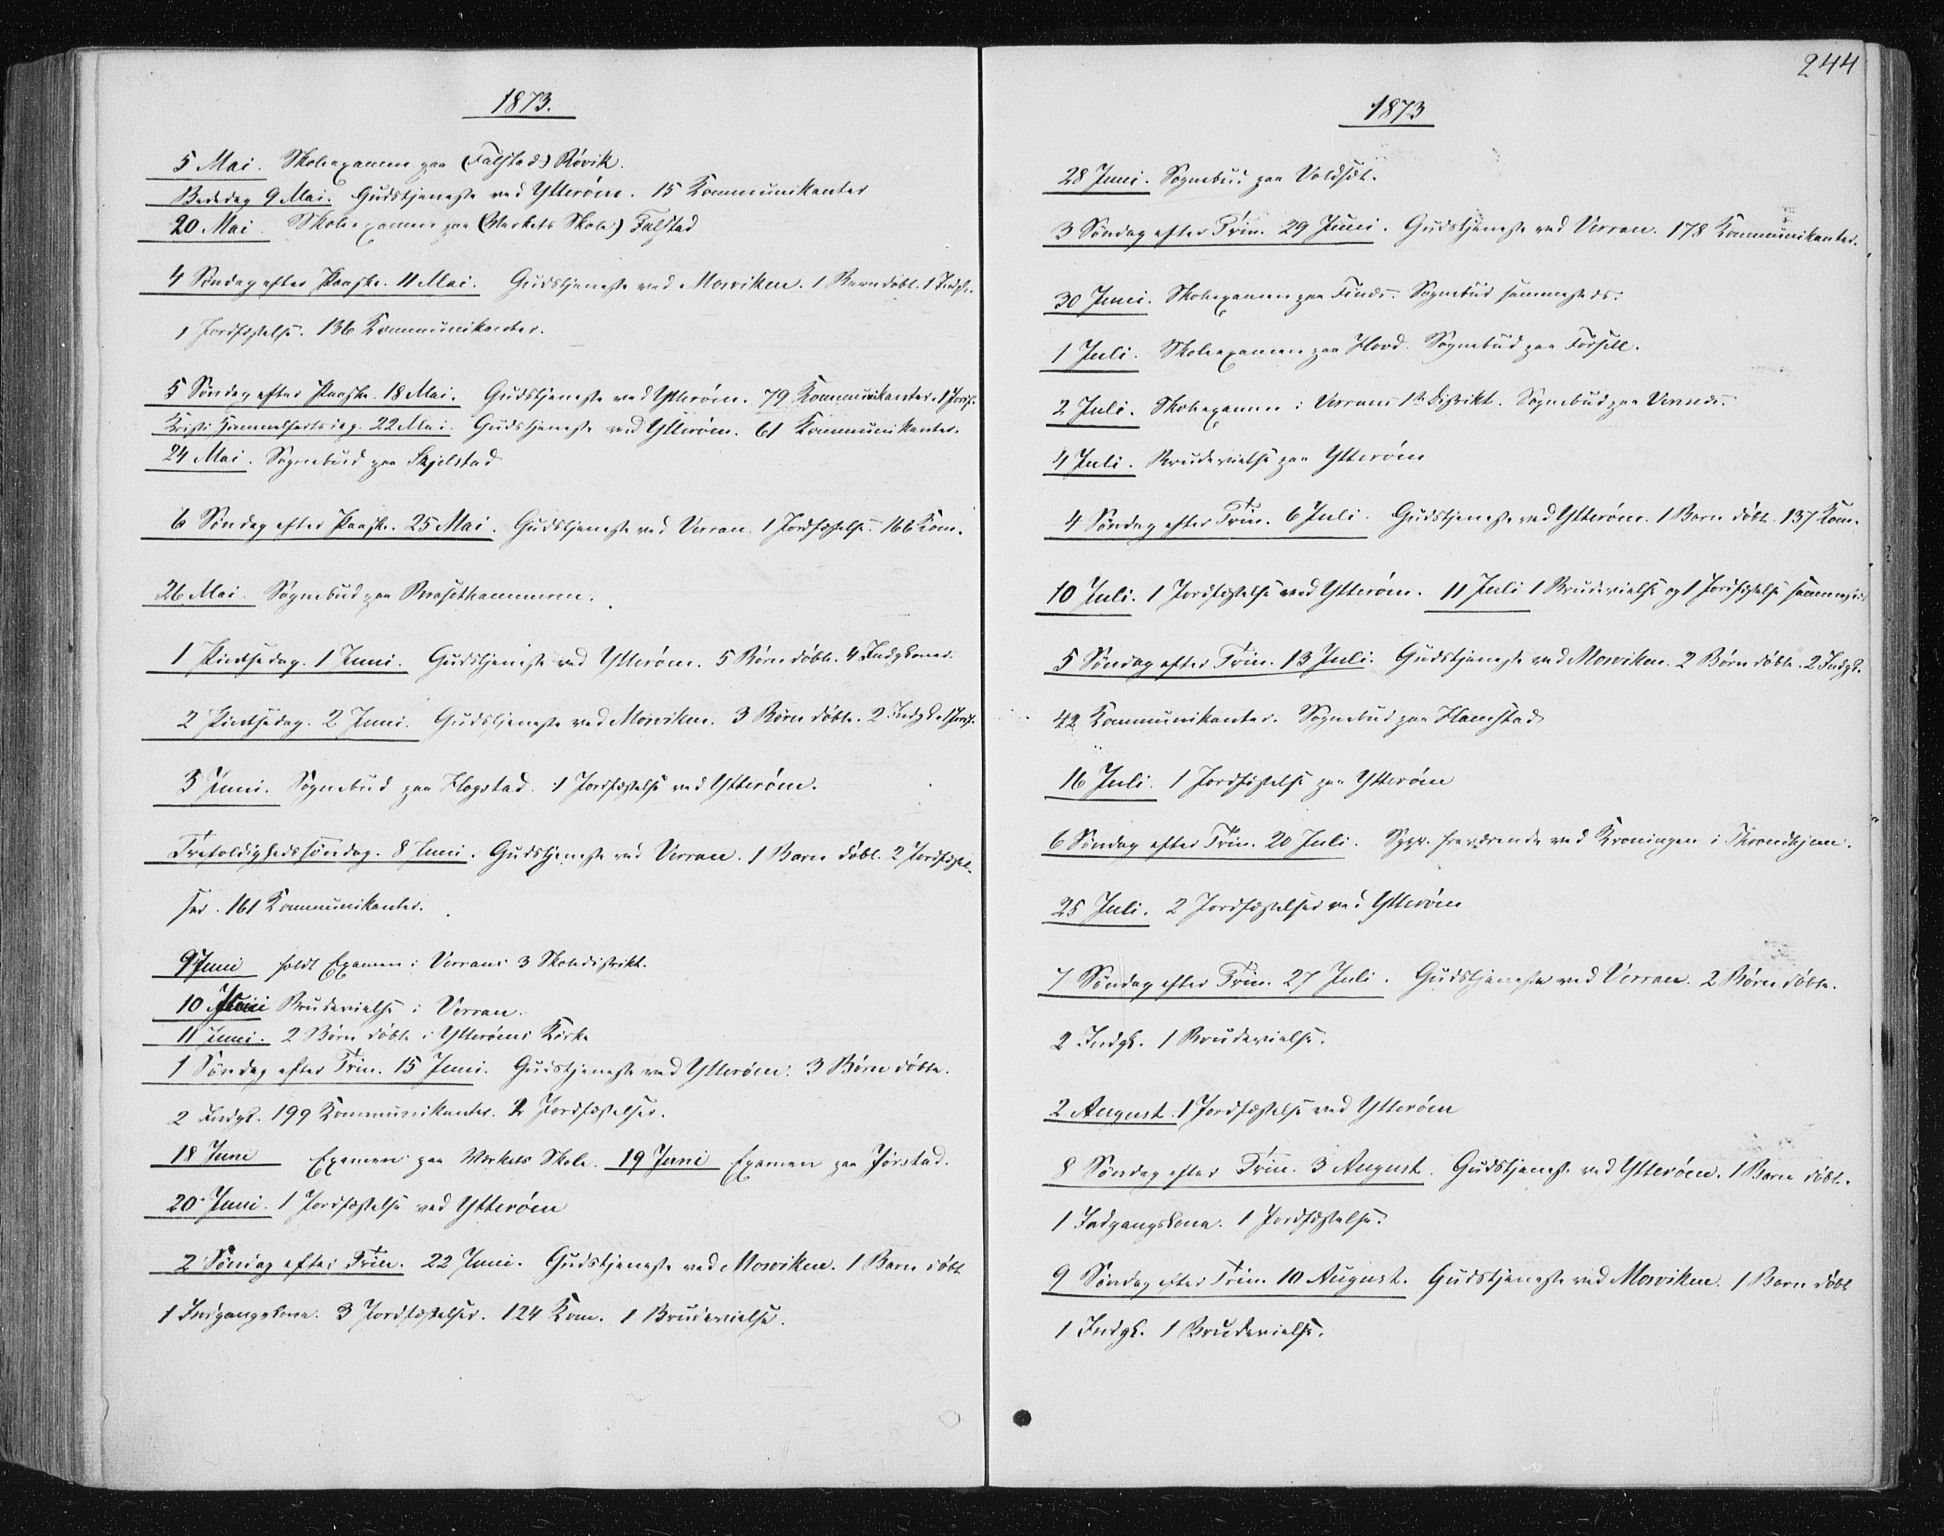 1873.
5 Mai. Skoleexamen paa (Falstad) Røvik.
Bededag 9 Mai. Gudstjeneste ved Ytterøen. 15 Kommunikanter
20 Mai. Skoleexamen paa (Værkets Skole) Falstad
4 Søndag efter Paaske. 11 Mai. Gudstjeneste ved Mosviken. 1 Barn døbt. 1 Indgk.
1 Jordfæstelse. 136 Kommunikanter.
5 Søndag efter Paaske. 18 Mai. Gudstjeneste ved Ytterøen. 79 Kommunikanter. 1 Jordf.
Kristi Himmelfartsdag. 22 Mai. Gudstjeneste ved Ytterøen. 61 Kommunikanter.
24 Mai. Sognebud paa Skjelstad
6 Søndag efter Paaske. 25 Mai. Gudstjeneste ved Verran. 1 Jordfæstelse. 166 Kom.
26 Mai. Sognebud paa
1 Pintsedag. 1 Juni. Gudstjeneste ved Ytterøen. 5 Børn døbte. 4 Indgkoner.
2 Pintsedag. 2 Juni. Gudstjeneste ved Mosviken. 3 Børn døbte. 2 Indgk. 1 Jordf.
3 Juni. Sognebud paa Hogstad. 1 Jordfæstelse ved Ytterøen.
Trefoldighedssøndag. 8 Juni. Gudstjeneste ved Verran. 1 Barn døbt. 2 Jordfæstel-
ser. 161 Kommunikanter.
9 Juni holdt Examen i Verrans 3 Skoledistrikt.
10 Juni Brudevielse i Verran.
11 Juni. 2 Børn døbte i Ytterøens Kirke
1 Søndag efter Trin. 15 Juni. Gudstjeneste ved Ytterøen. 3 Børn døbte.
2 Indgk. 199 Kommunikanter. 2 Jordfæstelser.
18 Juni Examen paa Værkets Skole. 19 Juni Examen paa Jørstad.
20 Juni. 1 Jordfæstelse ved Ytterøen
2 Søndag efter Trin. 22 Juni. Gudstjeneste ved Mosviken. 1 Barn døbt
1 Indgangskone. 3 Jordfæstelser. 124 Kom. 1 Brudevielse.
244
1873
28 Juni. Sognebud paa Voldset.
3 Søndag efter Trin. 29 Juni. Gudstjeneste ved Verran. 178 Kommunikanter.
30 Juni. Skoleexamen paa Sognebud sammesteds.
1 Juli. Skoleexamen paa Hovd. Sognebud paa
2 Juli. Skoleexamen i Verrans 1ste Distrikt. Sognebud paa
4 Juli. Brudevielse paa Ytterøen
4 Søndag efter Trin. 6 Juli. Gudstjeneste ved Ytterøen. 1 Barn døbt. 137 Kom.
10 Juli. 1 Jordfæstelse ved Ytterøen. 11 Juli 1 Brudevielse og 1 Jordfæstelse sammesteds
5 Søndag efter Trin. 13 Juli. Gudstjeneste ved Mosviken. 2 Børn døbte. 2 Indgk.
42 Kommunikanter. Sognebud paa Hamstad
16 Juli. 1 Jordfæstelse paa Ytterøen
6 Søndag efter Trin. 20 Juli. Sgpr. fraværende ved Kroningen i Throndhjem.
25 Juli. 2 Jordfæstelser ved Ytterøen
7 Søndag efter Trin. 27 Juli. Gudstjeneste ved Verran. 2 Børn døbte.
2 Indgk. 1 Brudevielse.
2 August. 1 Jordfæstelse ved Ytterøen
8 Søndag efter Trin. 3 August. Gudstjeneste ved Ytterøen. 1 Barn døbt.
1 Indgangskone. 1 Jordfæstelse.
9 Søndag efter Trin. 10 August. Gudstjeneste ved Mosviken. 1 Barn døbt
1 Indgk. 1 Brudevielse.